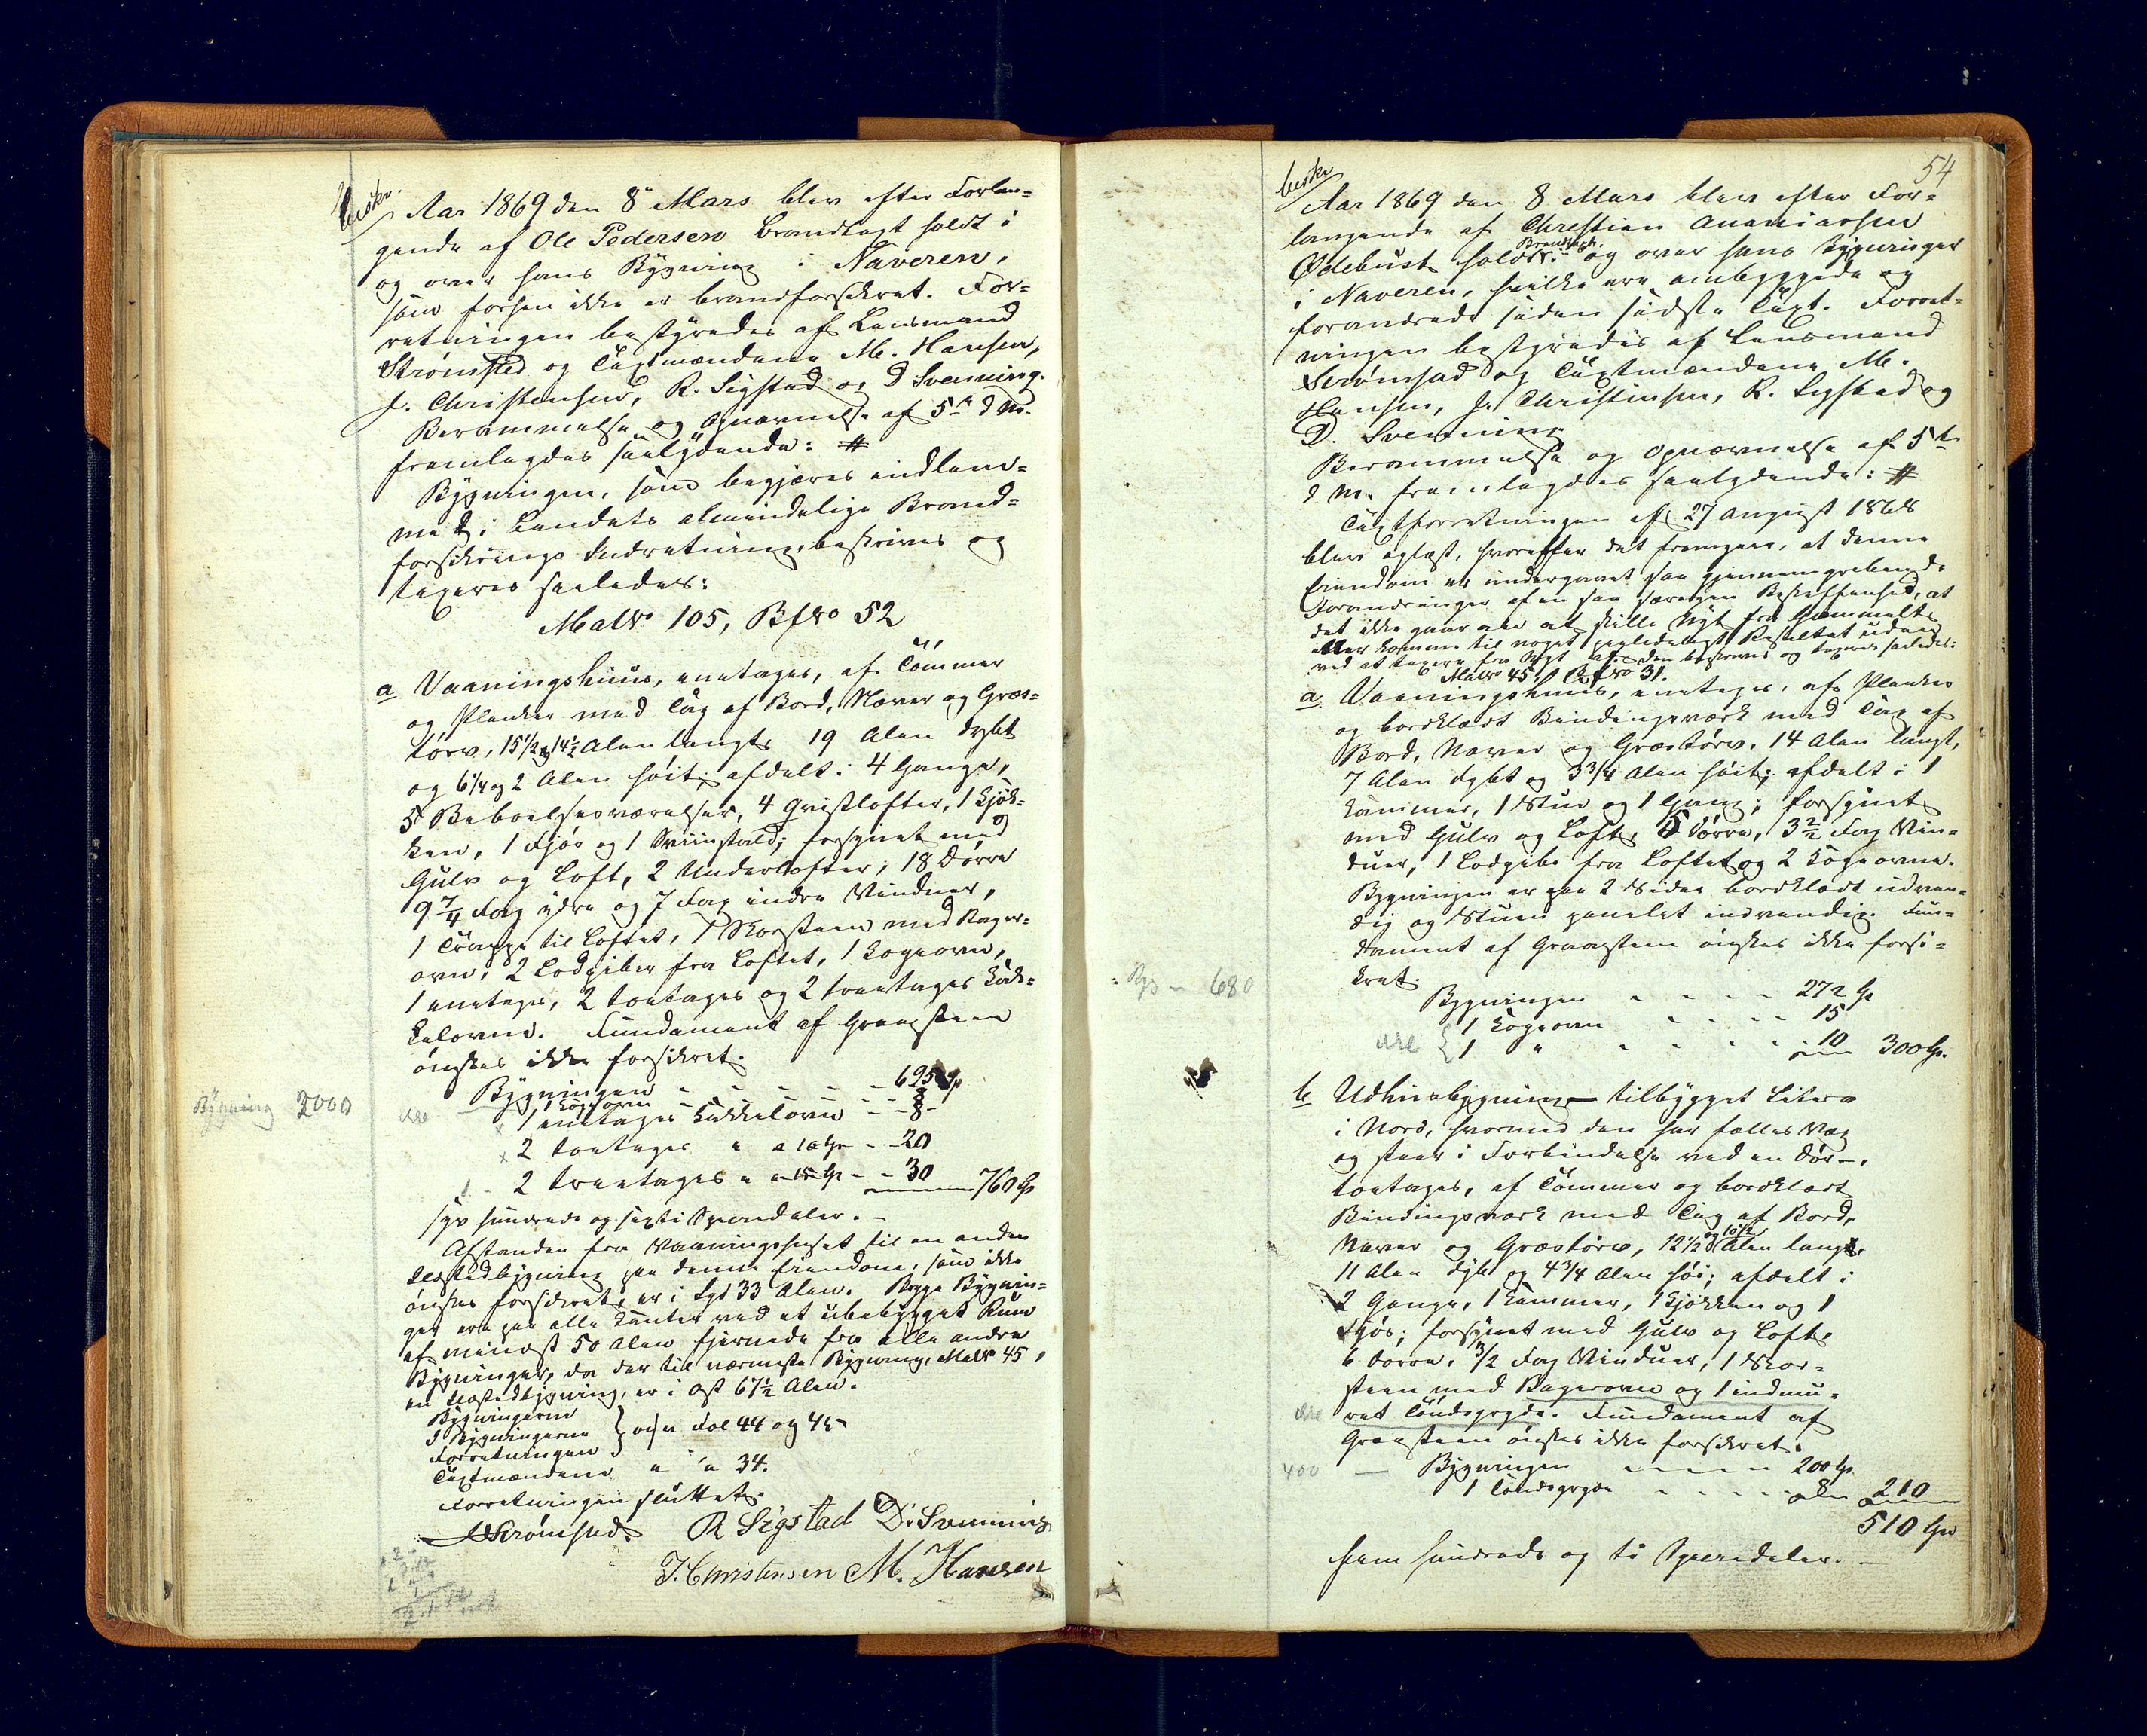 beskr.
Aar 1869 den 8 Mars blev efter Forlan-
gende af Ole Pedersen Brandtaxt holdt i
og over hans Bygning i Naveren,
som forhen ikke er brandforsikret. For-
retningen bestyredes af Lensmand
Strømsted og Taxtmændene M. Hansen,
J. Christensen, R. Sigstad og D Svenning.
Berammelse og Opnævnelse af 5te d M.
fremlagdes saalydende: #
Bygningen, som begjæres indlem-
met i Landets almindelige Brand-
forsikrings Indretning, beskrives og
taxeres saaledes:
MatNo 105, BfNo 52
a Vaaningshuus, eenetages, af Tømmer
og Planker med Tag af Bord, Næver og Græs-
tørv, 15 1/2 og 14 1/2 Alen langt, 19 Alen dybt
og 6 1/4 og 2 Alen høit; afdelt i 4 Gange,
5 Beboelsesværelser, 4 Qvistlofter, 1 Kjøk-
ken, 1 Fjøs og 1 Sviinstald; forsynet med
Gulv og Loft, 2 Underlofter, 18 Dørre
9 7/4 Fag ydre og 7 Fag indre Vinduer,
1 Trappe til Loftet, 1 Skorsteen med Bager-
ovn, 2 Lodpiber fra Loftet, 1 Kogeovn,
1 eenetages, 2 toetages og 2 treetages Kak-
kelovne. Fundament af Graasteen
ønskes ikke forsikret.
Bygningen - - - - 695 Sp
1 Kogeovn
1 eenetages Kakkelovn - - 8 -
2 toetages " a 10 Sp - - 20
2 treetages " a 15 Sp - - 30 760 Sp
Bygning 2000
syv hundrede og sexti Speciedaler. -
Afstanden fra Vaaningshuset til en anden
Ildstedbygning paa denne Eiendom, som ikke
ønskes forsikret, er i Syd 33 Alen. Begge Bygnin-
ger ere paa alle Kanter ved et ubebygget Rum
af mindst 50 Alen fjernede fra alle andre
Bygninger, da der til nærmeste Bygning, MatNo 45,
en Ildstedbygning, er i Øst 67 1/2 Alen.
Bygningerne
d Bygningerne
Forretningen } Fol 44 og 45
Taxtmændene " " 34.
Forretningen sluttet.
Strømsted. R Sigstad D. Svenning
J. Christensen M. Hansen
54
beskr
Aar 1869 den 8 Mars blev efter For-
langende af Christian Ananiassen
Ødebust holdt Brandtaxt i og over hans Bygninger
i Naveren, hvilke ere ombyggede og
forandrede siden sidste Taxt. Forret-
ningen bestyredes af Lensmand
Strømsted og Taxtmændene M.
Hansen, J. Christensen, R. Sigstad og
D. Svenning
Berammelse og Opnævnelse af 5te
d M. fremlagdes saalydende: #
Taxtforretningen af 27 August 1868
blev oplæst, hvorefter det fremgaar, at denne
Eiendom er undergaaet saa gjennemgribende
Forandringer af en saa særegen Beskaffenhed, at
det ikke gaar an at skille Nyt fra Gammelt
eller komme til noget paalideligt Resultat uden
ved at taxere fra Nyt af; den beskrives og taxeres saaledes:
MatNo 45, BfNo 31.
a. Vaaningshuus, eenetages, af Planker
og bordklædt Bindingsværk med Tag af
Bord, Næver og Græstørv, 14 Alen langt,
7 Alen dybt og 3 3/4 Alen høit; afdelt i 1
Kammer, 1 Stue og 1 Gang; forsynet
med Gulv og Loft, 5 Dørre, 3 2/2 Fag Vin-
duer, 1 Lodpibe fra Loftet og 2 Kogeovne.
Bygningen er paa 2 Sider bordklædt udven-
dig og Stuen panelet indvendig. Fun-
dament af Graasteen ønskes ikke forsi-
kret.
Bgs - 680
Bygningen - - - - 272 Sp
1 Kogeovn - - - - 15
1 " - - - - 10 300 Sp.
b Udhuusbygning - tilbygget Litra a
i Nord, hvormed den har fælles Væg
og staar i Forbindelse ved en Dør -,
toetages, af Tømmer og bordklædt
Bindingsværk med Tag af Bord,
Næver og Græstørv, 12 1/2 og 10 1/2 Alen lang,
11 Alen dyb og 4 3/4 Alen høi; afdelt i
2 Gange, 1 Kammer, 1 Kjøkken og 1
Fjøs; forsynet med Gulv og Loft,
6 Dørre, 3/2 Fag Vinduer, 1 Skor-
steen med Bagerovn og 1 indmu-
ret Tøndegryde. Fundament af
Graasteen ønskes ikke forsikret.
400 - Bygningen - - - - 200 Sp
1 Tøndegryde - - - - 210
510 Sp
fem hundrede og ti Speciedaler. -